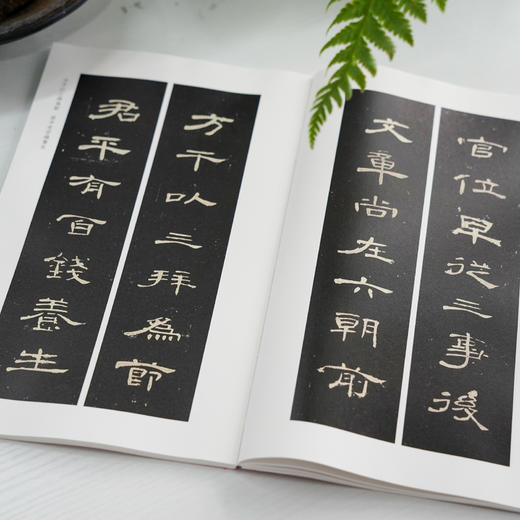 官位早從三事後
文章尚在六朝前
方干以三拜為節
君平有百錢養生